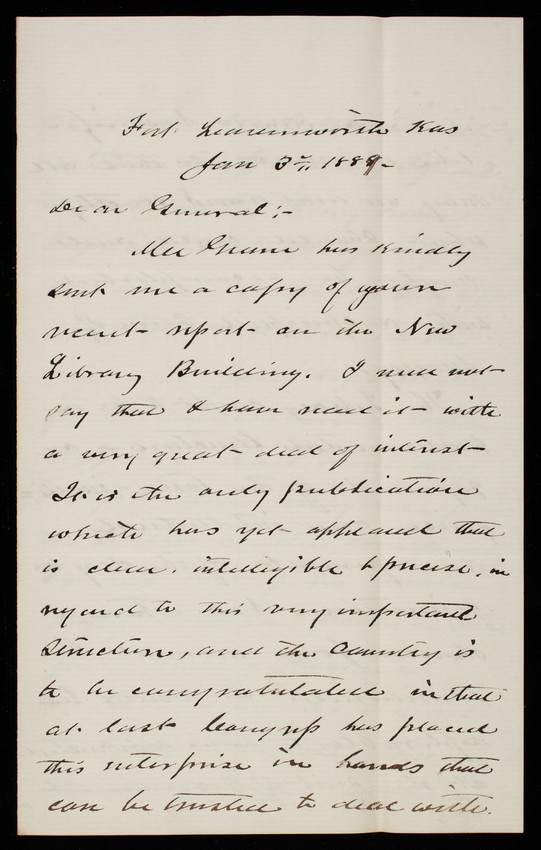 Fort Leavenworth Kas
Jan 3d 1889-
Dear General;-
Mr Green has kindly
sent me a copy of your
recent report on the New
Library Building. I need not
say that I have read it with
a very great deal of interest
It is the only publication
which has yet appeared that
is clear, intelligible & precise, in
regard to this very important
structure, and the Country is
to be congratulated in that
at last Congress has placed
this enterprise in hands that
can be trusted to deal with.